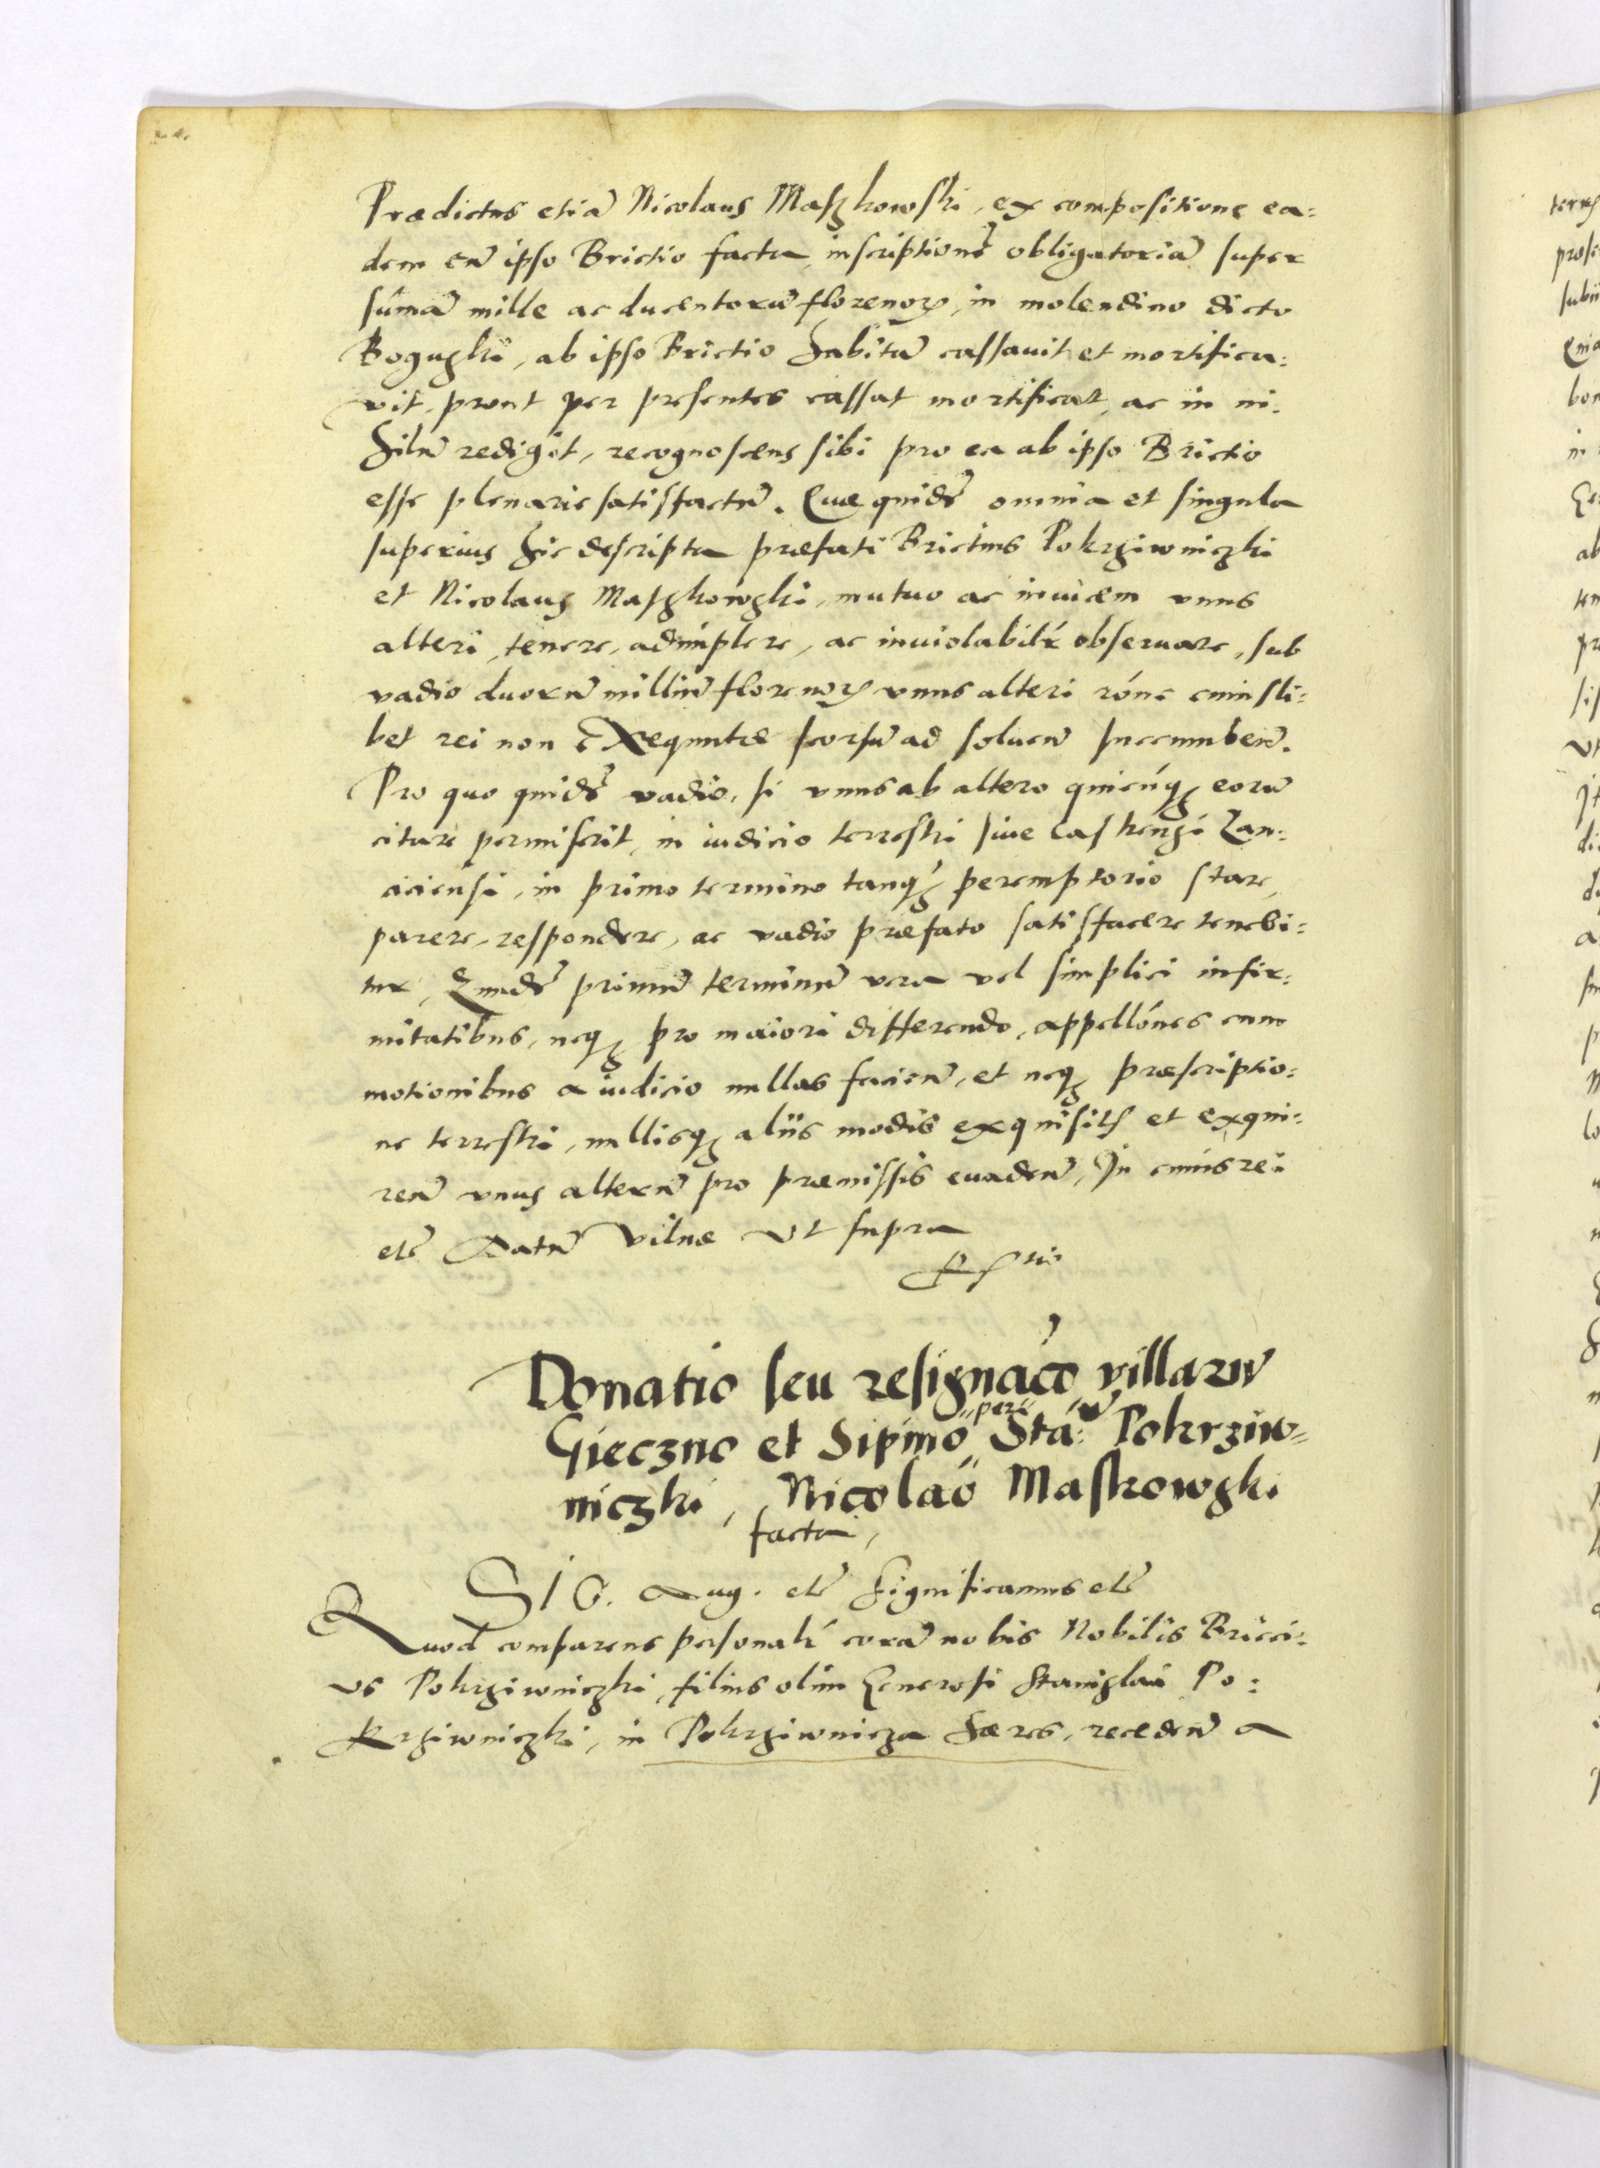 Prædictus etiã Nicolaus Maszkowski, ex compositione ea:
dem cũ ipso Brictio facta, inscriptionẽ obligatoriã super
sũmã mille ac ducentorũ florenoꝝ, in molendino dicto
Boguzki, ab ipso Brictio habitã cassauit et mortifica:
vit, prout per presentes cassat mortificat, ac in ni:
hilũ redigit, recognoscens sibi pro ea ab ipso Brictio
esse plenarie satisfactũ. Quæ quidẽ omnia et singula
superius hic descripta præfati Brictius Pokrziwniczki
et Nicolaus Maszkowski, mutuo ac inuicem vnus
alteri, tenere, adimplere, ac inuiolabilr̃ obseruare, sub
vadio duorũ milliũ florenoꝝ vnus alteri rõne cuiusli:
bet rei non exequutæ seorsũ ad soluen̄ succumben̄.
Pro quo quidẽ vadio, si vnus ab altero quicũqꝫ eorũ
citare permiserit, in iudicio terrestri siue castrensi Lan:
ciciensi, in primo termino tanqꝫ peremptorio stare,
parere, respondere, ac vadio præfato satisfacere tenebi:
tur, Quidẽ primũ terminũ vera vel simplici infir:
mitatibus, neqꝫ pro maiori differendo, appellõnes cum
motionibus a iudicio nullas facien̄, et neqꝫ præscriptio:
ne terrestri, nullisqꝫ aliis modis exquisitis et exqui:
ren̄ vnus alterũ pro præmissis euaden̄, In cuius rei
etc̃ Datũ Vilnæ vt supra
Donatio seu resignac̃o villarũ
Gieczno et Sipino per Sta: Pokrziw=
niczki, Nicolao Maskowski
facta,
SIG. Aug. etc̃ Significamus etc̃
Quod comparens personalr̃ corã nobis Nobilis Bricci:
us Pokrziwniczki, filius olim Generosi Stanislai Po:
krziwniczki, in Pokrziwnicza hæres, receden̄ a